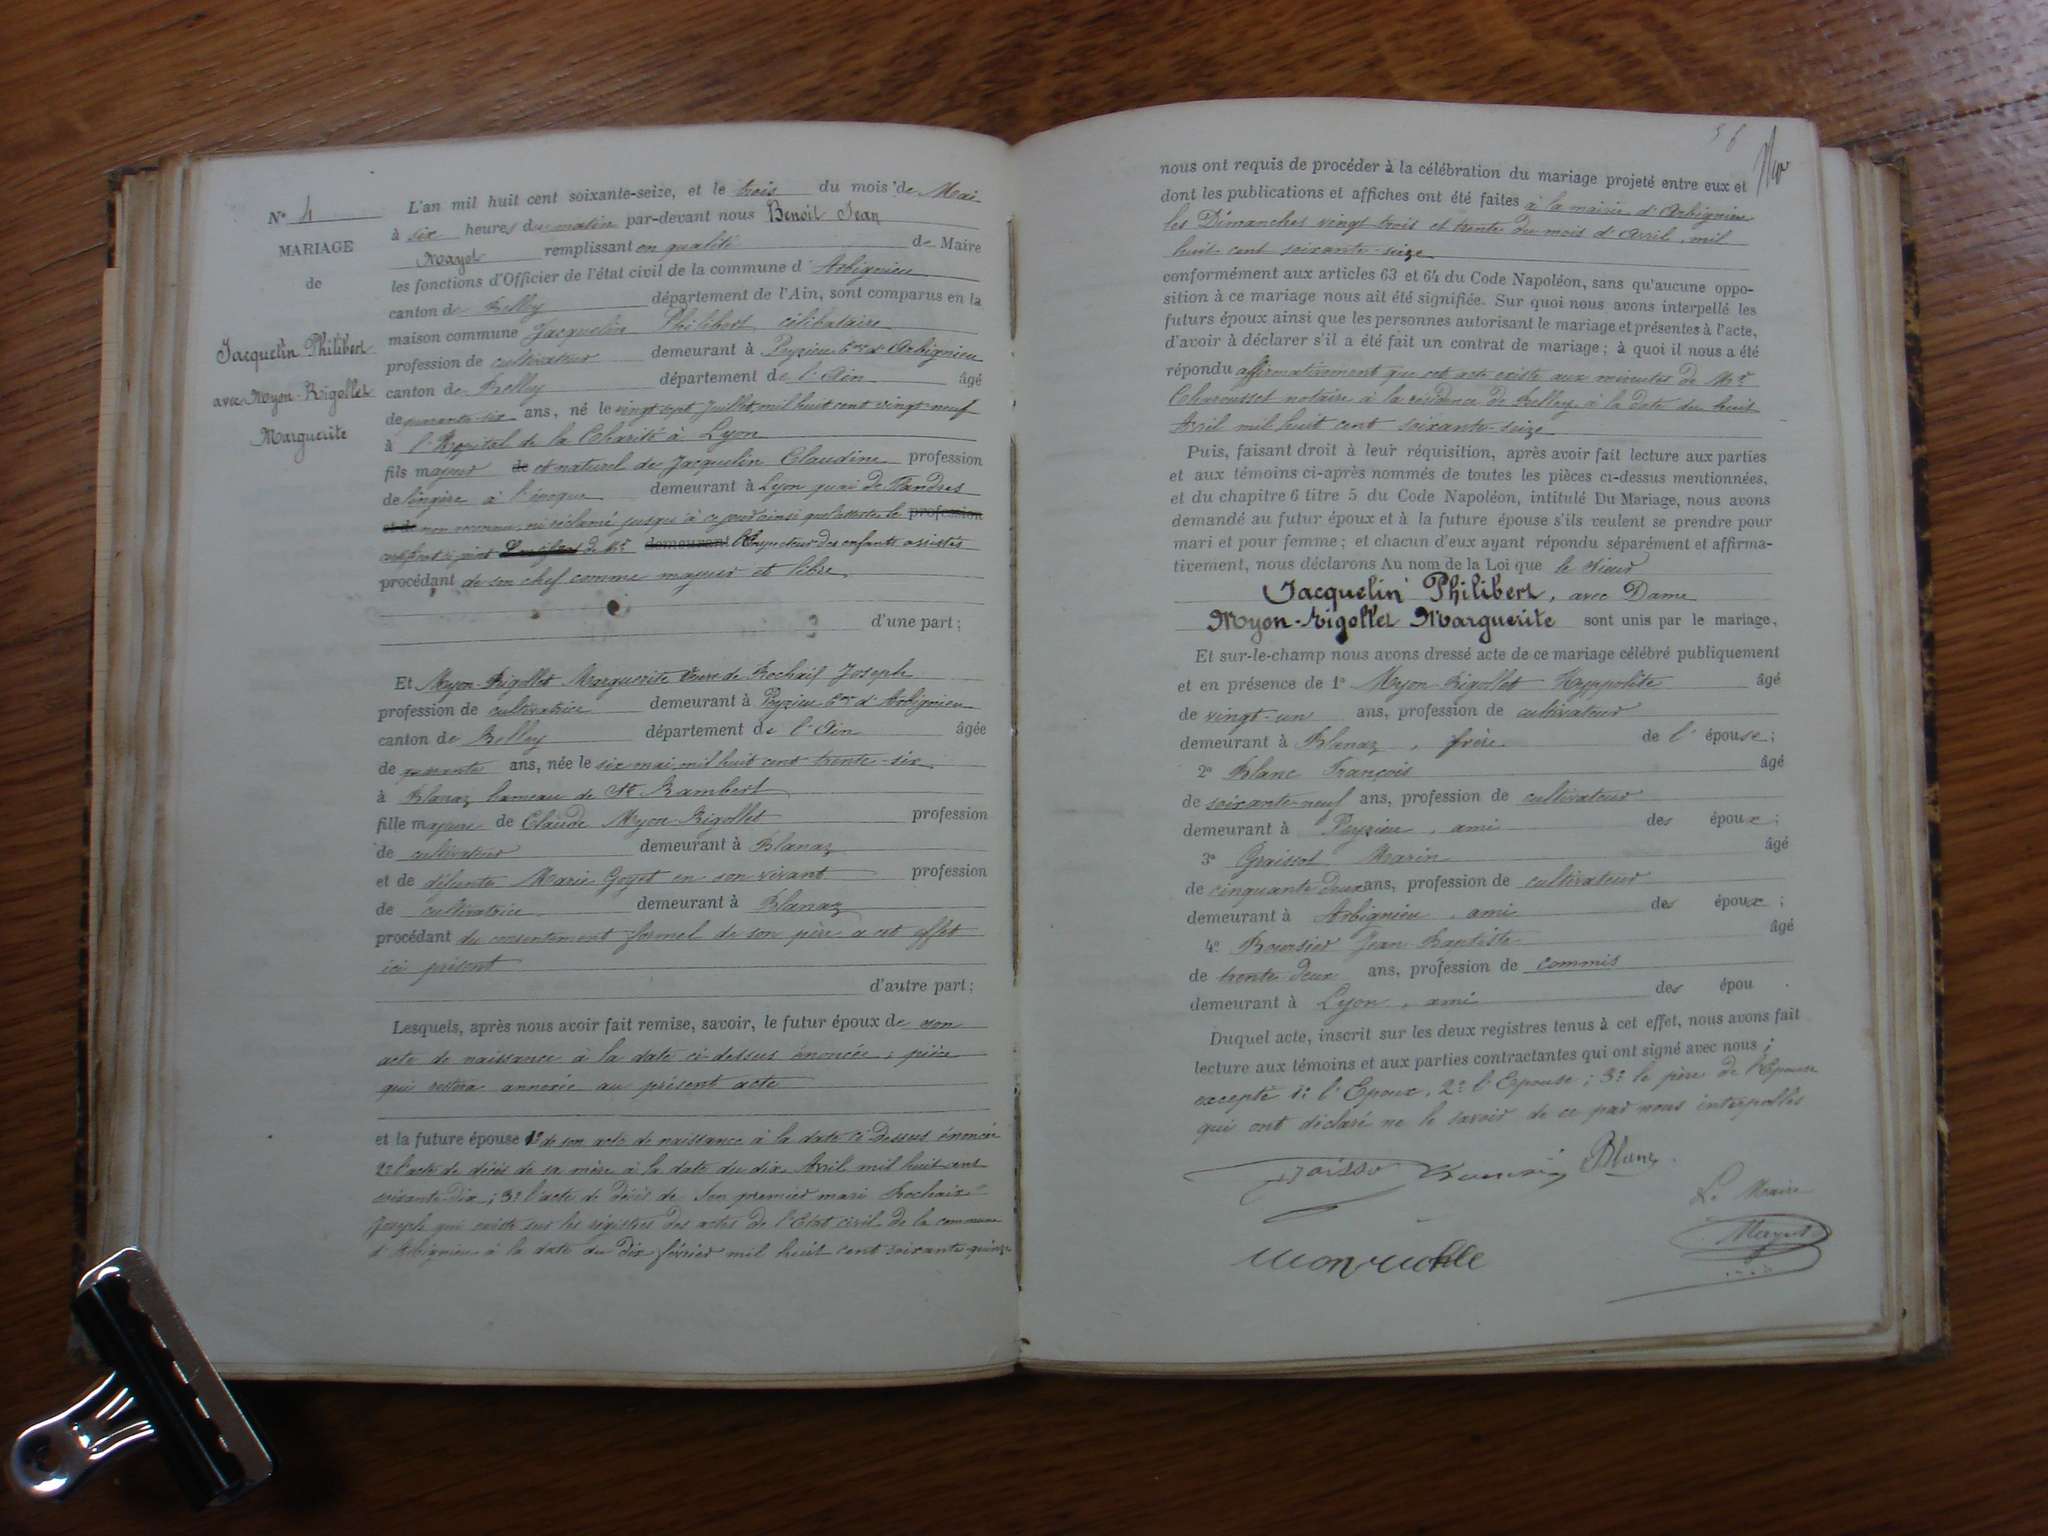 N° 4
MARIAGE
de
Jacquelin Philibert
avec Myon-Rigollet
Marguerite
L'an mil huit cent soixante-seize, et le trois du mois de Mai
à six heures du matin par-devant nous Benoit Jean
Mayet remplissant en qualité de Maire
les fonctions d'Officier de l'état civil de la commune d'Arbignieu
canton de Belley département de l'Ain, sont comparus en la
maison commune Jacquelin Philibert, célibataire
profession de cultivateur demeurant à Peyzieu Cne d'Arbignieu
canton de Belley département de l'Ain âgé
de quarante six ans, né le vingt sept Juillet mil huit cent vingt-neuf
à l'Hopital de la Charité à Lyon
fils majeur de et naturel de Jacquelin Claudine profession
de lingère à l'époque demeurant à Lyon quai de Flandres
et de non reconnu, ni réclamé jusqu'à ce jour ainsi que l'atteste le profession
certificat ci-joint de Mr demeurant l'Inspecteur des enfants assistés
procédant de son chef comme majeur et libre
d'une part;
Et Myon-Rigollet Marguerite veuve de Rochaix Joseph
profession de cultivatrice demeurant à Peyzieu Cne d'Arbignieu
canton de Belley département de l'Ain âgée
de quarante ans, née le six mai mil huit cent trente-six
à Blanaz hameau de St Rambert
fille majeure de Claude Myon-Rigollet profession
de cultivateur demeurant à Blanaz
et de défunte Marie Goyet en son vivant profession
de cultivatrice demeurant à Blanaz
procédant du consentement formel de son père a cet effet
ici présent
d'autre part;
Lesquels, après nous avoir fait remise, savoir, le futur époux de son
acte de naissance à la date ci-dessus énoncée; pièce
qui restera annexée au présent acte
et la future épouse 1° de son acte de naissance à la date ci dessus énoncée
2° l'acte de décès de sa mère à la date du dix Avril mil huit cent
soixante-dix; 3° l'acte de décès de son premier mari Rochaix
Joseph qui existe sur les registres des actes de l'Etat civil de la commune
d'Arbignieu à la date du dix février mil huit cent soixante quinze
56
nous ont requis de procéder à la célébration du mariage projeté entre eux et
dont les publications et affiches ont été faites à la mairie d'Arbignieu
les Dimanches vingt trois et trente du mois d'Avril mil
huit cent soixante-seize
conformément aux articles 63 et 64 du Code Napoléon, sans qu'aucune oppo-
sition à ce mariage nous ait été signifiée. Sur quoi nous avons interpellé les
futurs époux ainsi que les personnes autorisant le mariage et présentes à l'acte,
d'avoir à déclarer s'il a été fait un contrat de mariage; à quoi il nous a été
répondu affirmativement que cet acte existe aux minutes de Mr
Charousset notaire à la résidence de Belley à la date du huit
Avril mil huit cent soixante-seize
Puis, faisant droit à leur réquisition, après avoir fait lecture aux parties
et aux témoins ci-après nommés de toutes les pièces ci-dessus mentionnées,
et du chapitre 6 titre 5 du Code Napoléon, intitulé Du Mariage, nous avons
demandé au futur époux et à la future épouse s'ils veulent se prendre pour
mari et pour femme; et chacun d'eux ayant répondu séparément et affirma-
tivement, nous déclarons Au nom de la Loi que le sieur
Jacquelin Philibert, avec Dame
Myon-Rigollet Marguerite sont unis par le mariage,
Et sur-le-champ nous avons dressé acte de ce mariage célébré publiquement
et en présence de 1° Myon-Rigollet Hyppolite âgé
de vingt-un ans, profession de cultivateur
demeurant à Blanaz, frère de l'épouse;
2° Blanc François âgé
de soixante-neuf ans, profession de cultivateur
demeurant à Peyzieu, ami des époux;
3° Graissot Marin âgé
de cinquante deux ans, profession de cultivateur
demeurant à Arbignieu, ami des époux;
4° Boursier Jean-Baptiste âgé
de trente deux ans, profession de commis
demeurant à Lyon, ami des épou
Duquel acte, inscrit sur les deux registres tenus à cet effet, nous avons fait
lecture aux témoins et aux parties contractantes qui ont signé avec nous;
excepté 1° l'Epoux, 2° l'Epouse; 3° le père de l'Epouse
qui ont déclaré ne le savoir de ce par nous interpellés
Blanc
Le Maire
Mayet